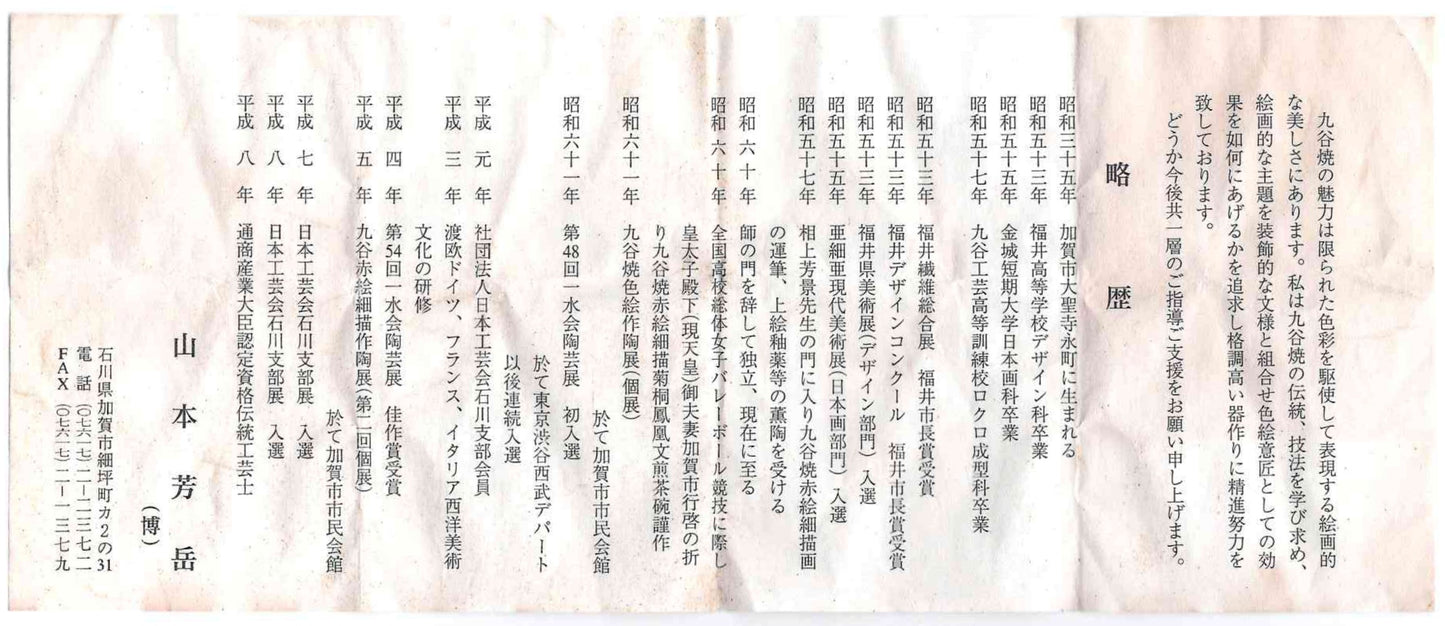 九谷焼の魅力は限られた色彩を駆使して表現する絵画的
な美しさにあります。私は九谷焼の伝統、技法を学び求め、
絵画的な主題を装飾的な文様と組合せ色絵意匠としての効
果を如何にあげるかを追求し格調高い器作りに精進努力を
致しております。
どうか今後共一層のご指導ご支援をお願い申し上げます。
略歴
昭和三十五年 加賀市大聖寺永町に生まれる
昭和五十三年 福井高等学校デザイン科卒業
昭和五十五年 金城短期大学日本画科卒業
昭和五十七年 九谷工芸高等訓練校ロクロ成型科卒業
昭和五十三年 福井繊維総合展 福井市長賞受賞
昭和五十三年 福井デザインコンクール 福井市長賞受賞
昭和五十三年 福井県美術展(デザイン部門)入選
昭和五十五年 亜細亜現代美術展(日本画部門)入選
昭和五十七年 相上芳景先生の門に入り九谷焼赤絵細描画
の運筆、上絵釉薬等の薫陶を受ける
昭和六十年 師の門を辞して独立、現在に至る
昭和六十年 全国高校総体女子バレーボール競技に際し
皇太子殿下(現天皇)御夫妻加賀市行啓の折
り九谷焼赤絵細描菊桐鳳凰文煎茶碗謹作
昭和六十一年 九谷焼色絵作陶展(個展)
於て加賀市市民会館
昭和六十一年 第48回一水会陶芸展 初入選
於て東京渋谷西武デパート
以後連続入選
平成元年 社団法人日本工芸会石川支部会員
平成三年 渡欧ドイツ、フランス、イタリア西洋美術
文化の研修
平成四年 第54回一水会陶芸展 佳作賞受賞
平成五年 九谷赤絵細描作陶展(第二回個展)
於て加賀市市民会館
平成七年 日本工芸会石川支部展 入選
平成八年 日本工芸会石川支部展 入選
平成八年 通商産業大臣認定資格伝統工芸士
山本芳岳
(博)
石川県加賀市細坪町カ2の31
電話(〇七六一七)二一二三七二
FAX(〇七六一七)二一一三七九